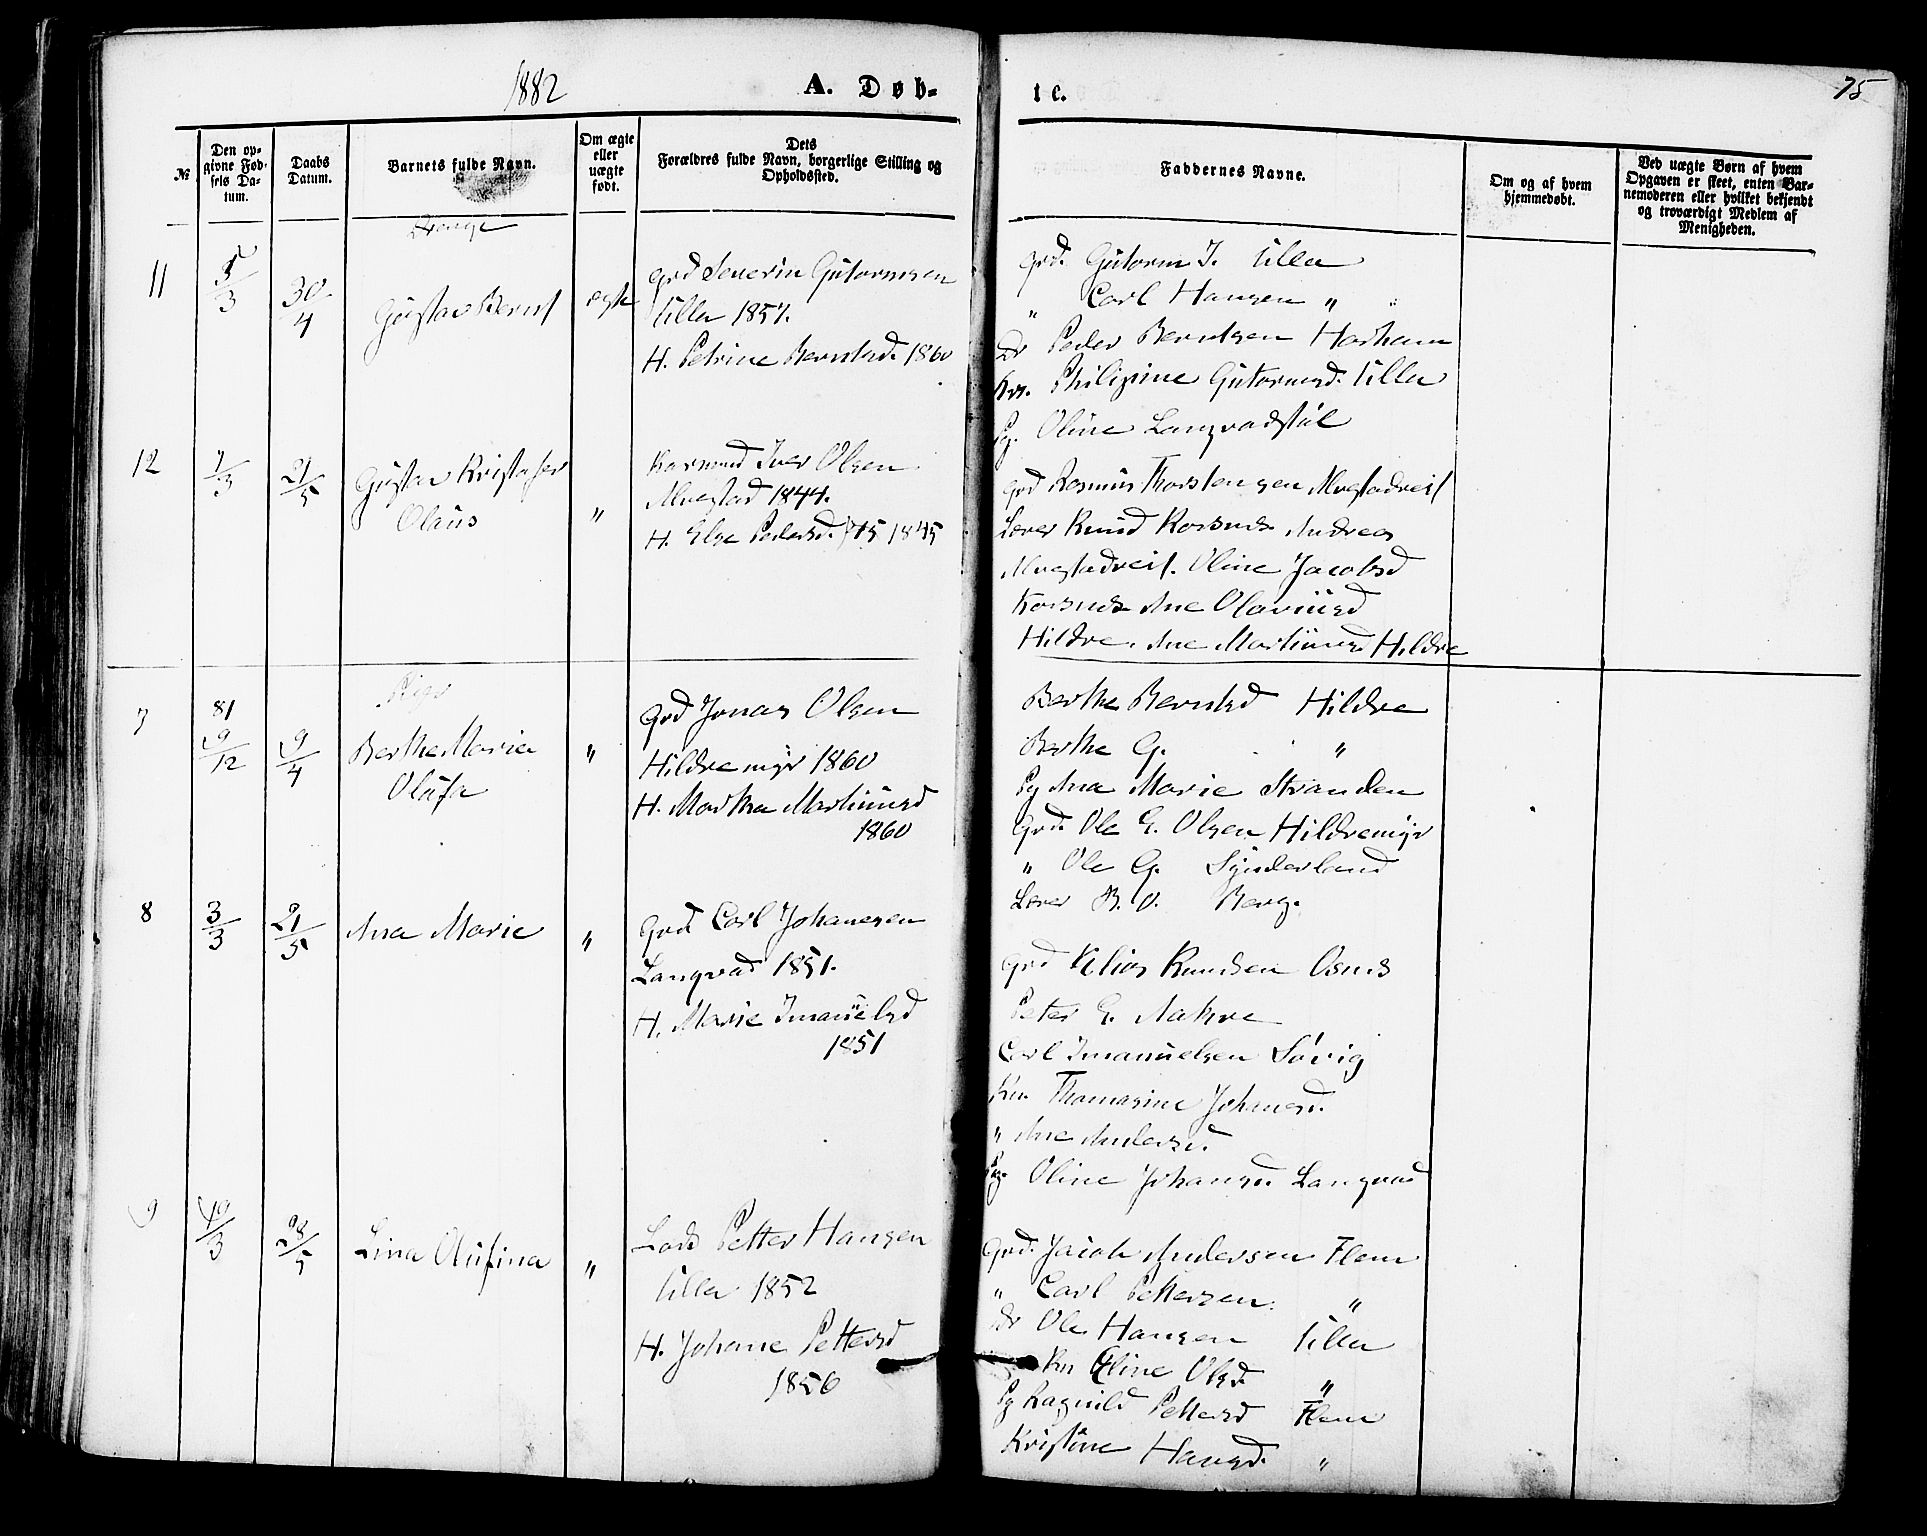 1882
A. Døb-
te.
75
№
Den op-
givne Fød-
sels Da-
tum.
Daabs
Datum.
Barnets fulde Navn.
Om ægte
eller
uægte
født.
Dets
Forældres fulde Navn, borgerlige Stilling og
Opholdssted.
Faddernes Navne.
Om og af hvem
hjemmedøbt.
Ved uægte Børn af hvem
Opgaven er skeet, enten Bar-
nemoderen eller hvilket bekjendt
og troværdigt Medlem af
Menigheden.
Drenge
11
3
30/4
Gustav Bernt
ægte
Grd Severin Gutormsen
Ulla 1857.
H. Petrine Berntsd. 1860
Grd. Gutorm J. Ulla
" Carl Hansen " "
Dr Peder Berntsen Harham
Kn. Philipine Gutormsd. Ulla
Pg. Oline Langvadstøl
12
7/3
21/5
Gustav Kristofer
Olaus
"
Iver Olsen
Alvestad 1844.
H. Else Pedersd. 1845
Grd Rasmus Thorstensen Alvestadreit
Lærer Knud Korsnes Andreas
Alvestadreit. Oline Jacobsd
Korsnes Ane Olaviusd
Hildre. Ane Martinusd Hildre
7
Piger
81
9/12
9/4
Berthe Marie
Olufa
"
Grd Jonas Olsen
Hildremyr 1860
H. Marthe Martinusd
1860
Berthe Berntsd Hildre
Berthe G. "
Pg Ana Marie Stranden
Grd. Ole E. Olsen Hildremyr
" Ole G. Synderland
Lærer B. O. Berg.
8
3/3
21/5
Ana Marie
"
Grd Carl Johansen
Langvad 1851.
H. Marie Imanuelsd
1851
Grd Elias Knudsen Osnes
Peter E. Aakre
Carl Imanuelsen Søvig
Kn Thomasine Johansd.
" Ane Andersd.
Pg. Oline Johansd. Langvad
9
19/3
28/5
Lina Olufina
"
Petter Hansen
Ulla 1852
H. Johane Pettersd
1856
Grd. Jacob Andersen Flem
" Carl Pettersen "
Dr Ole Hansen Ulla
Kn Eline Olsd. "
Pg Ragnild Pettersd Flem
Kristine Hansd. "